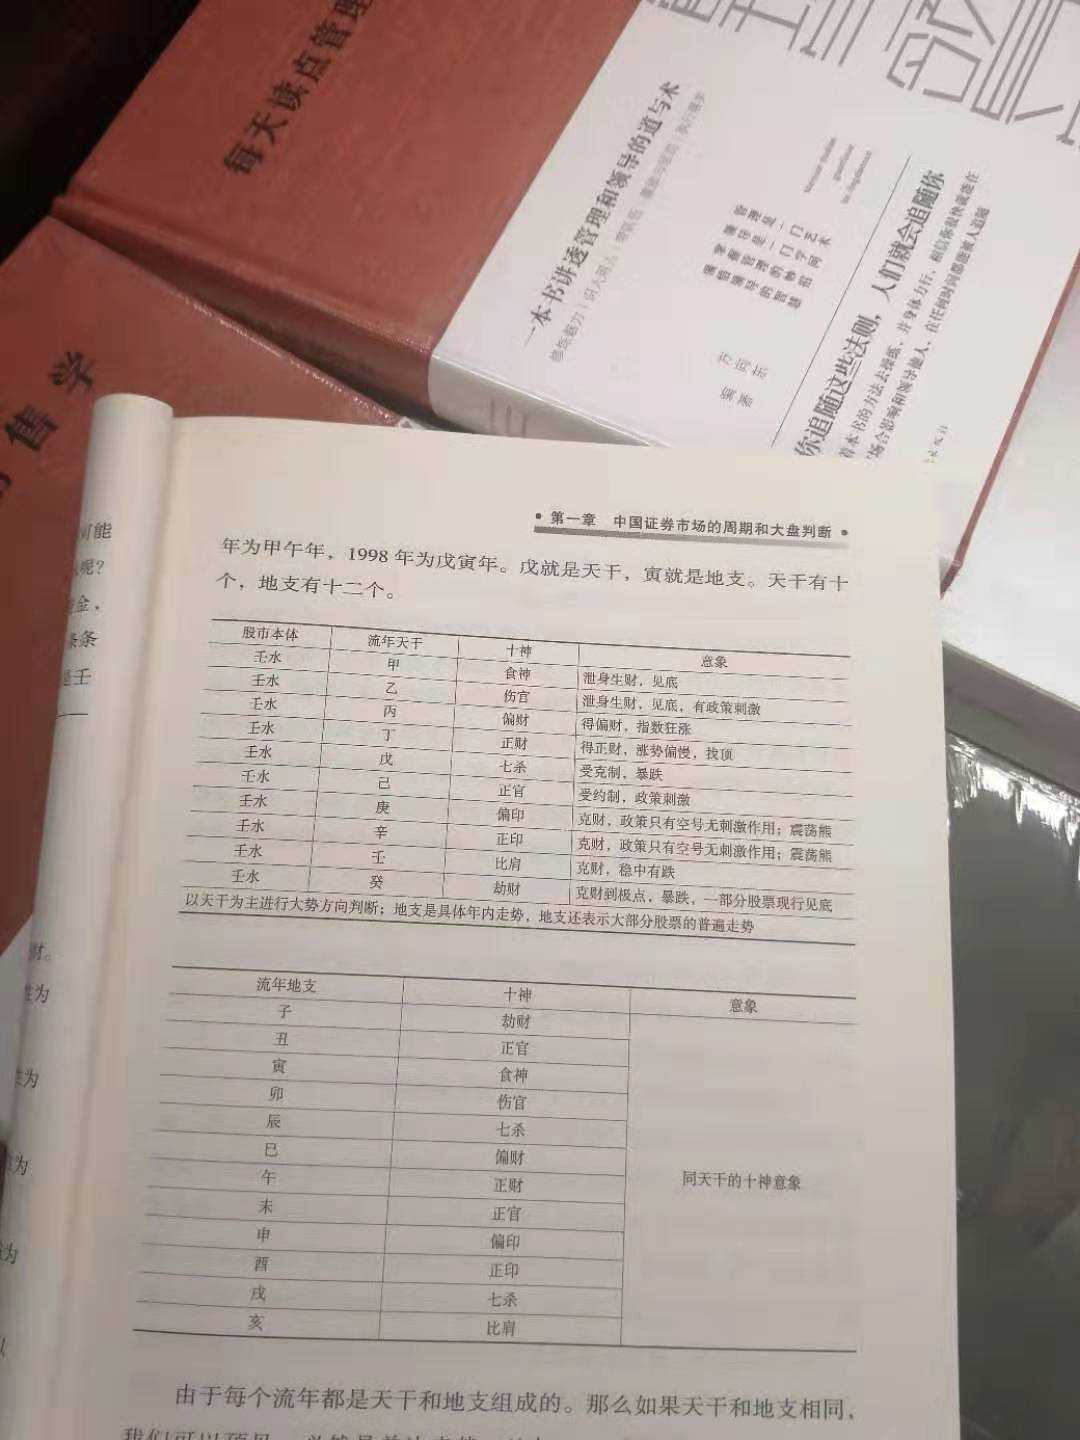 每天读点管理
一本书讲透管理和领导的道与术
管理是一门艺术
领导是一门学问
掌握管理的妙招
领悟领导的智慧
方向东
编著
你追随这些法则，人们就会追随你
着本书的方法去操练，并身体力行，相信你很快就能在
场合影响和领导他人，在任何时间都能被人追随
售学
可能
呢？
金，
条条
是壬
财。
在为
为
为
为
• 第一章 中国证券市场的周期和大盘判断 •
年为甲午年，1998 年为戊寅年。戊就是天干，寅就是地支。天干有十
个，地支有十二个。
股市本体 流年天干 十神 意象
壬水 甲 食神 泄身生财，见底
壬水 乙 伤官 泄身生财，见底，有政策刺激
壬水 丙 偏财 得偏财，指数狂涨
壬水 丁 正财 得正财，涨势偏慢，找顶
壬水 戊 七杀 受克制，暴跌
壬水 己 正官 受约制，政策刺激
壬水 庚 偏印 克财，政策只有空号无刺激作用；震荡熊
壬水 辛 正印 克财，政策只有空号无刺激作用；震荡熊
壬水 壬 比肩 克财，稳中有跌
壬水 癸 劫财 克财到极点，暴跌，一部分股票现行见底
以天干为主进行大势方向判断；地支是具体年内走势，地支还表示大部分股票的普遍走势
流年地支 十神 意象
子 劫财
丑 正官
寅 食神
卯 伤官
辰 七杀
巳 偏财
午 正财 同天干的十神意象
未 正官
申 偏印
酉 正印
戌 七杀
亥 比肩
由于每个流年都是天干和地支组成的。那么如果天干和地支相同，
我们可以预见